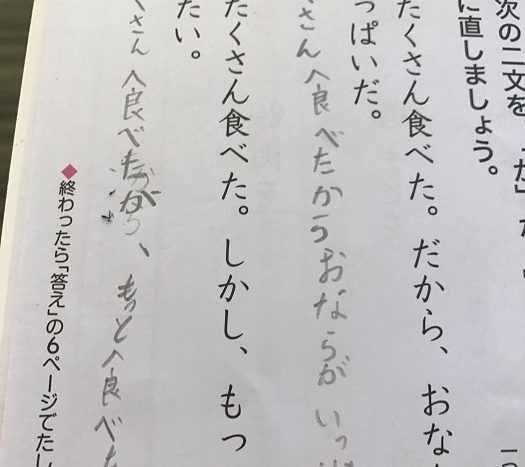 次の二文を
に直しましょう。
たくさん食べた。だから、おな
っぱいだ。
さん食べたからおならがいっ
たくさん食べた。しかし、もっ
たい。
くさん食べたが、もっと食べた
◆終わったら「答え」の6ページでたし